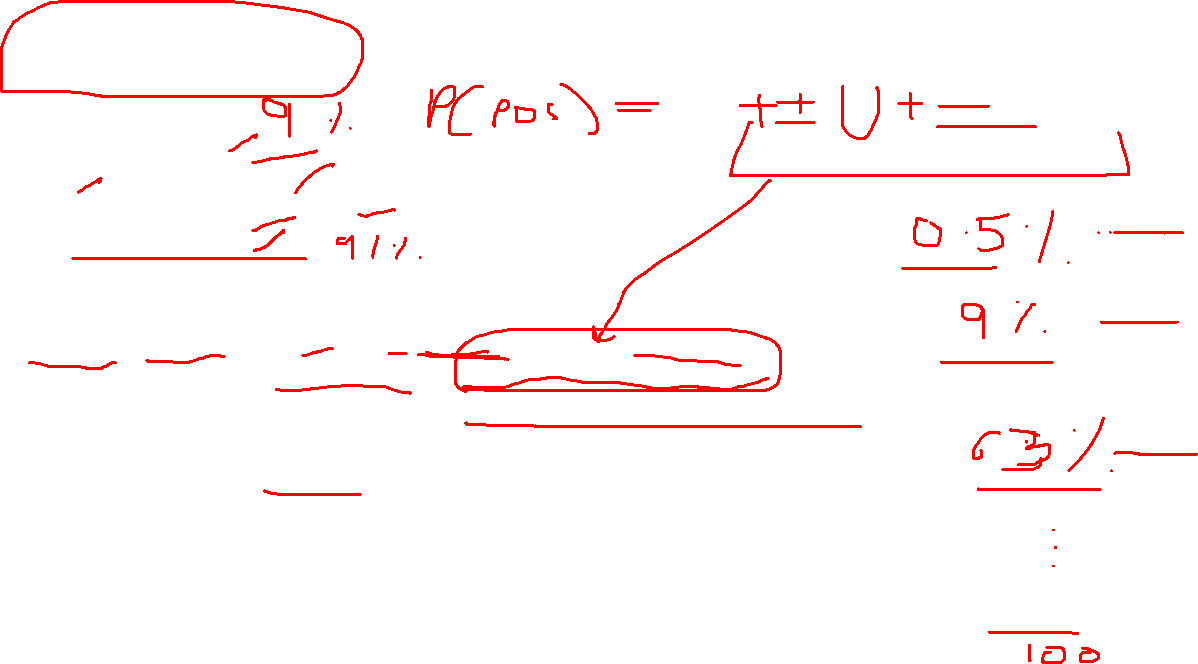 9%
P(pos) = + ± U +
91%
0.5%
9%
63%
100